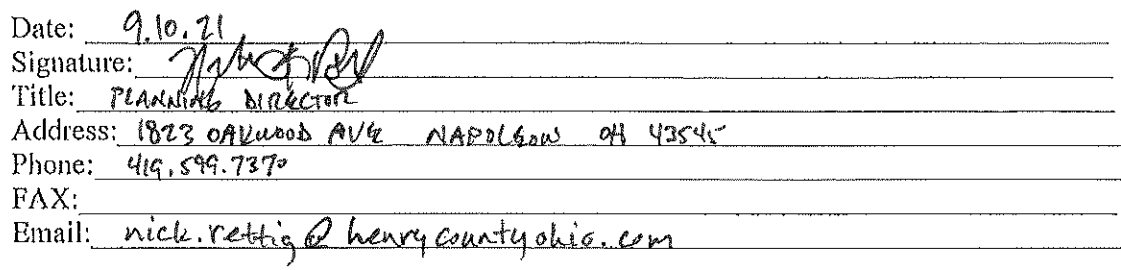 Date: 9.10.21
Signature:
Title: PLANNING DIRECTOR
Address: 1823 OAKWOOD AVE NAPOLEON OH 43545
Phone: 419.599.7370
FAX:
Email: nick.rettig@henrycountyohio.com